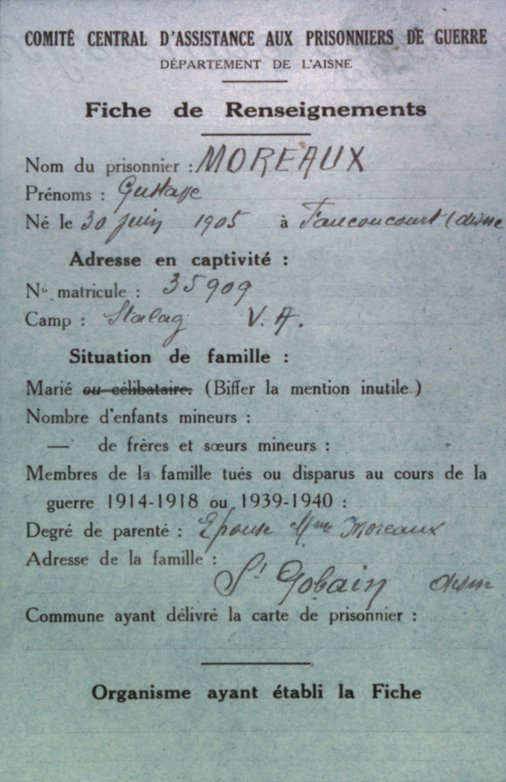 COMITÉ CENTRAL D'ASSISTANCE AUX PRISONNIERS DE GUERRE
DÉPARTEMENT DE L'AISNE
Fiche de Renseignements
Nom du prisonnier : MOREAUX
Prénoms :
Né le 30 juin 1905 à Faucoucourt (Aisne
Adresse en captivité :
No matricule : 35909
Camp : Stalag V. A.
Situation de famille :
Marié ou célibataire. (Biffer la mention inutile.)
Nombre d'enfants mineurs :
— de frères et sœurs mineurs :
Membres de la famille tués ou disparus au cours de la
guerre 1914-1918 ou 1939-1940 :
Degré de parenté : Epouse Mme Moreaux
Adresse de la famille :
St Gobain Aisne
Commune ayant délivré la carte de prisonnier :
Organisme ayant établi la Fiche